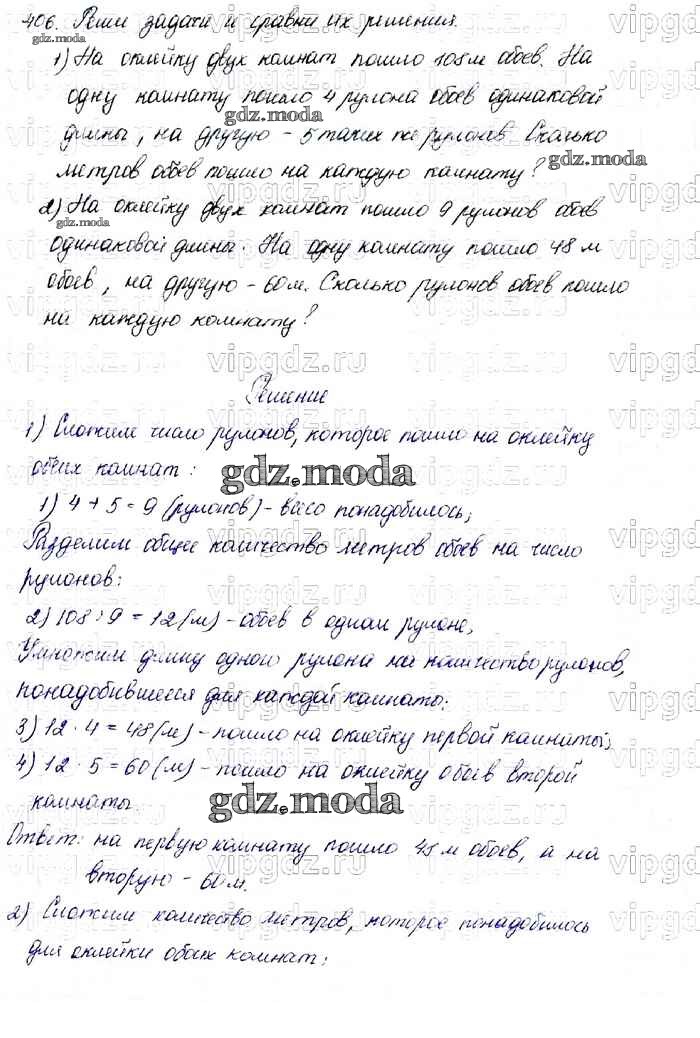 406. Реши задачи и сравни их решения.
1) На оклейку двух комнат пошло 108 м обоев. На
одну комнату пошло 4 рулона обоев одинаковой
длины, на другую - 5 таких же рулонов. Сколько
метров обоев пошло на каждую комнату?
2) На оклейку двух комнат пошло 9 рулонов обоев
одинаковой длины. На одну комнату пошло 48 м
обоев, на другую - 60 м. Сколько рулонов обоев пошло
на каждую комнату?
Решение
1) Сложим число рулонов, которое пошло на оклейку
обеих комнат:
1) 4 + 5 = 9 (рулонов) - всего понадобилось;
Разделим общее количество метров обоев на число
рулонов:
2) 108 : 9 = 12 (м) - обоев в одном рулоне,
Умножим длину одного рулона на количество рулонов,
понадобившееся для каждой комнаты:
3) 12 · 4 = 48 (м) - пошло на оклейку первой комнаты;
4) 12 · 5 = 60 (м) - пошло на оклейку обоев второй
комнаты.
Ответ: на первую комнату пошло 48 м обоев, а на
вторую - 60 м.
2) Сложим количество метров, которое понадобилось
для оклейки обоих комнат:
gdz.moda
gdz.moda
gdz.moda
gdz.moda
gdz.moda
gdz.moda
vipgdz.ru